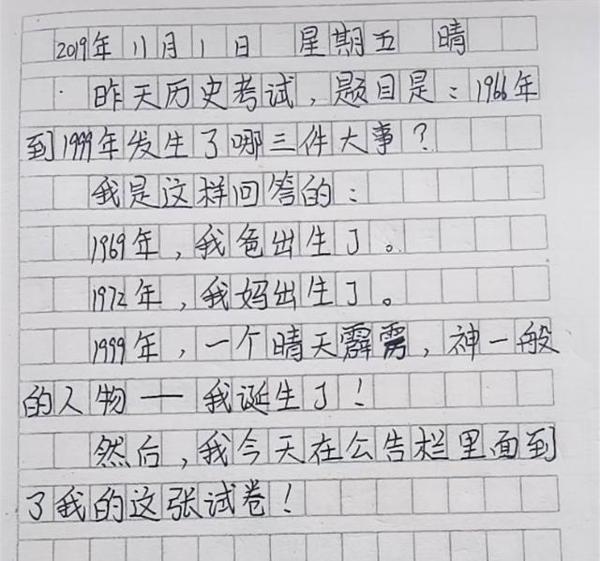 2019年11月1日 星期五 晴
昨天历史考试，题目是：1966年
到1999年发生了哪三件大事？
我是这样回答的：
1969年，我爸出生了。
1972年，我妈出生了。
1999年，一个晴天霹雳，神一般
的人物——我诞生了！
然后，我今天在公告栏里面到
了我的这张试卷！